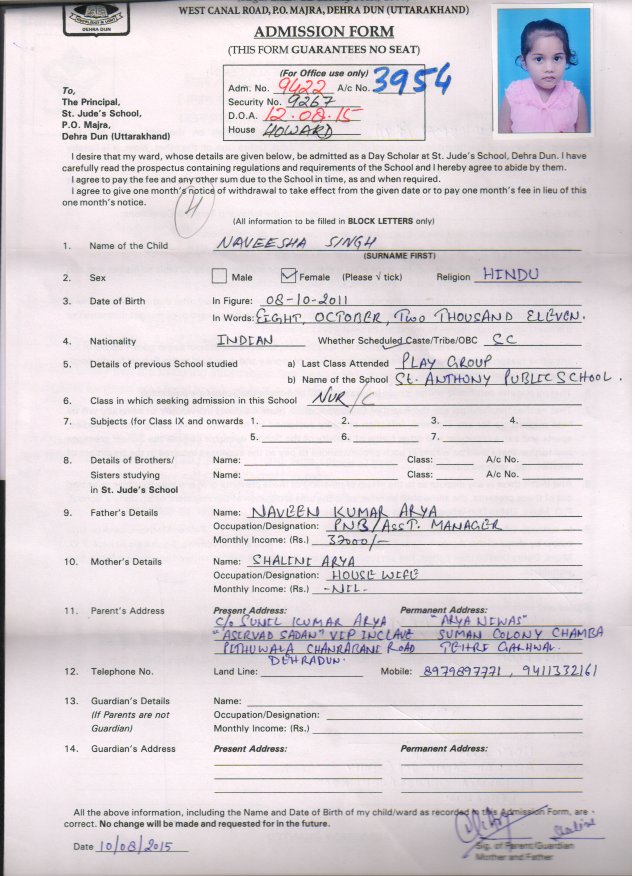 DEHRA DUN
WEST CANAL ROAD, P.O. MAJRA, DEHRA DUN (UTTARAKHAND)
ADMISSION FORM
(THIS FORM GUARANTEES NO SEAT)
(For Office use only)
Adm. No. 9422 A/c No. 3954
Security No. 9267
D.O.A. 12.08.15
House HOWARD
To,
The Principal,
St. Jude's School,
P.O. Majra,
Dehra Dun (Uttarakhand)
I desire that my ward, whose details are given below, be admitted as a Day Scholar at St. Jude's School, Dehra Dun. I have
carefully read the prospectus containing regulations and requirements of the School and I hereby agree to abide by them.
I agree to pay the fee and any other sum due to the School in time, as and when required.
I agree to give one month's notice of withdrawal to take effect from the given date or to pay one month's fee in lieu of this
one month's notice.
4
(All information to be filled in BLOCK LETTERS only)
1. Name of the Child NAVEESHA SINGH
(SURNAME FIRST)
2. Sex Male Female (Please √ tick) Religion HINDU
3. Date of Birth In Figure: 08-10-2011
In Words: EIGHT, OCTOBER, TWO THOUSAND ELEVEN.
4. Nationality INDIAN Whether Scheduled Caste/Tribe/OBC SC
5. Details of previous School studied a) Last Class Attended PLAY GROUP
b) Name of the School St. ANTHONY PUBLIC SCHOOL.
6. Class in which seeking admission in this School NUR/C
7. Subjects (for Class IX and onwards 1. 2. 3. 4.
5. 6. 7.
8. Details of Brothers/ Name: Class: A/c No.
Sisters studying Name: Class: A/c No.
in St. Jude's School
9. Father's Details Name: NAVEEN KUMAR ARYA
Occupation/Designation: PNB/ASST. MANAGER
Monthly Income: (Rs.) 37000/-
10. Mother's Details Name: SHALINI ARYA
Occupation/Designation: HOUSE WIFE
Monthly Income: (Rs.) -NIL-
11. Parent's Address Present Address: Permanent Address:
C/o SUNIL KUMAR ARYA "ARYA NIWAS"
"ASERVAD SADAN" VIP INCLAVE SUMAN COLONY CHAMBA
PITHUWALA CHANRABANI ROAD TEHRI GARHWAL.
DEHRADUN.
12. Telephone No. Land Line: Mobile: 8979897771, 9411332161
13. Guardian's Details Name:
(If Parents are not Occupation/Designation:
Guardian) Monthly Income: (Rs.)
14. Guardian's Address Present Address: Permanent Address:
All the above information, including the Name and Date of Birth of my child/ward as recorded in this Admission Form, are
correct. No change will be made and requested for in the future.
Date 10/08/2015 Shalini
Sig. of Parent/Guardian
Mother and Father